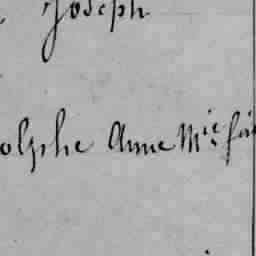 Joseph
olphe Anne M.ie